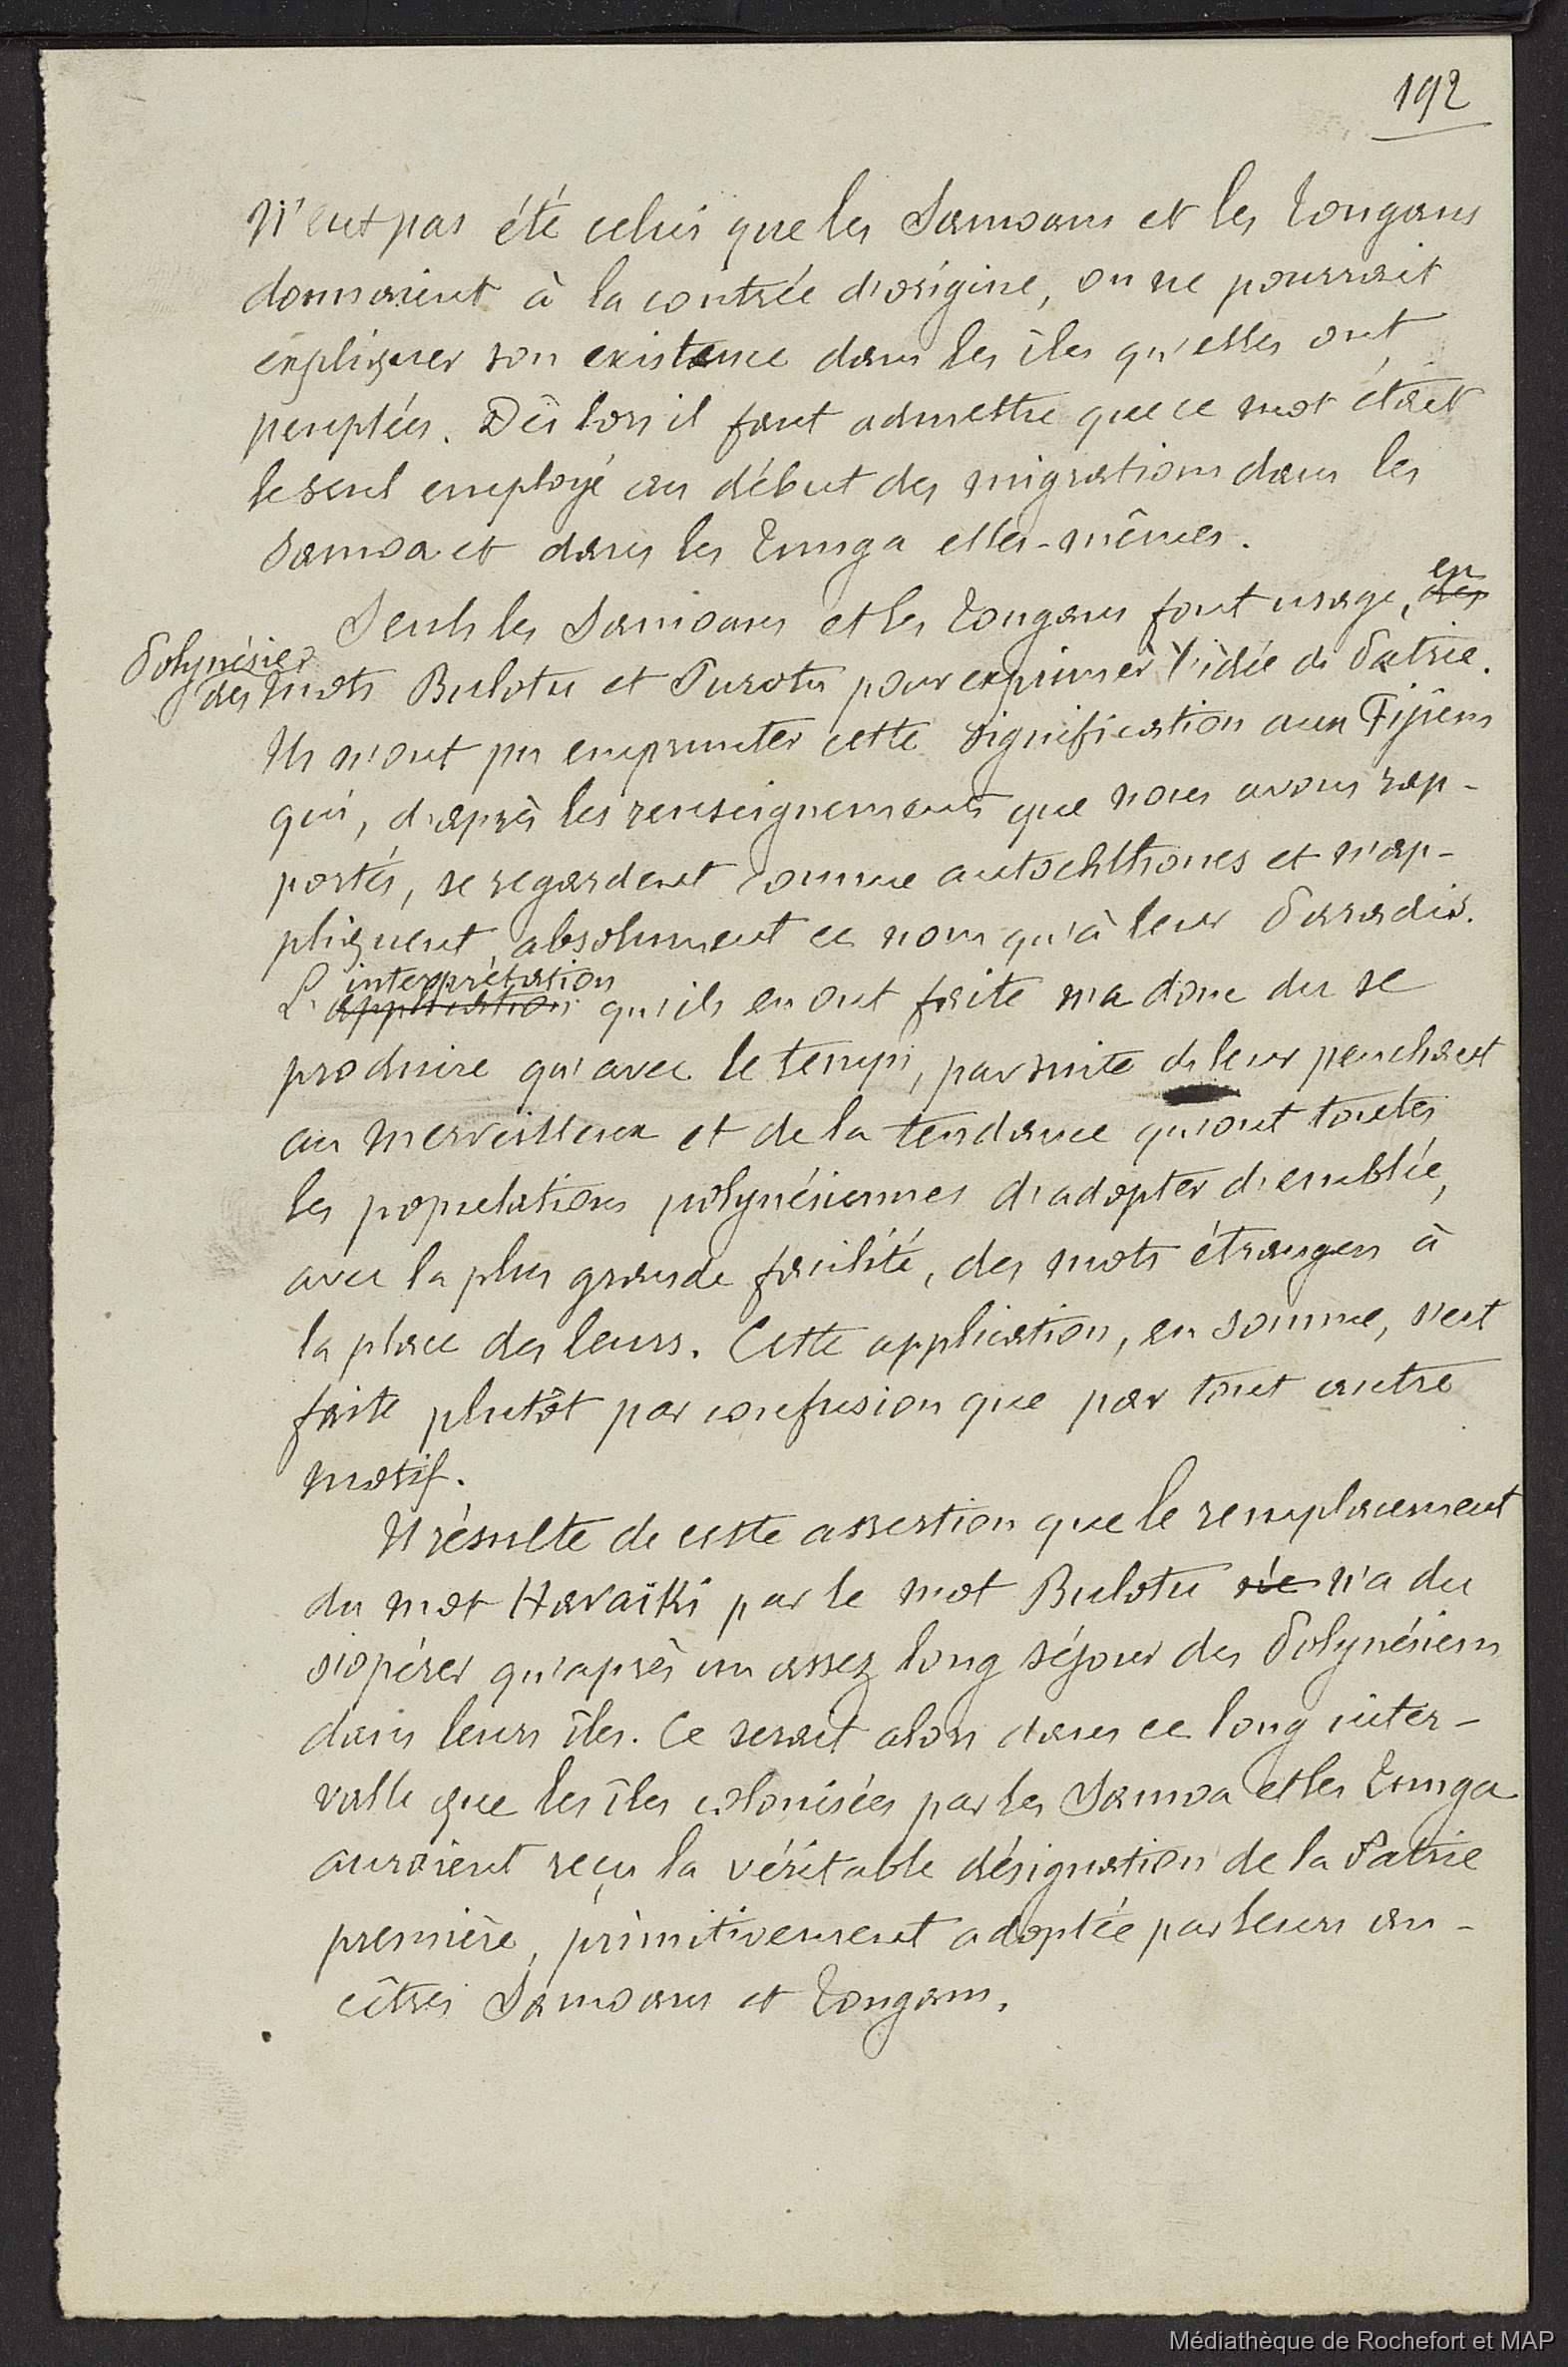 192
N'eut pas été celui que les Samoans et les Tongans
donnaient à la contrée d'origine, on ne pourrait
expliquer son existence dans les îles qu'elles ont
peuplées. Dès lors il faut admettre que ce mot était
le seul employé au début des migrations dans les
Samoa et dans les Tunga elles-mêmes.
Seuls les Samoans et les Tongans font usage, en des
Polynésie
des mots Bulotu et Purotu pour exprimer l'idée de Patrie.
Ils n'ont pu emprunter cette signification aux Fijiens
qui, d'après les renseignements que nous avons rap-
portés, se regardent comme autochthones et n'ap-
pliquent absolument ce nom qu'à leur Paradis.
L' interprétation
L'application qu'ils en ont faite n'a donc du se
produire qu'avec le temps, par suite de leur penchant
au merveilleux et de la tendance qu'ont toutes
les populations polynésiennes d'adopter d'emblée,
avec la plus grande facilité, des mots étrangers à
la place des leurs. Cette application, en somme, s'est
faite plutôt par confusion que par tout autre
motif.
Il résulte de cette assertion que le remplacement
du mot Havaïki par le mot Bulotu n'a du
s'opérer qu'après un assez long séjour des Polynésiens
dans leurs îles. Ce serait alors dans ce long inter-
valle que les îles colonisées par les Samoa et les Tunga
auraient reçu la véritable désignation de la Patrie
première, primitivement adoptée par leurs an-
cêtres Samoans et Tongans.
Médiathèque de Rochefort et MAP